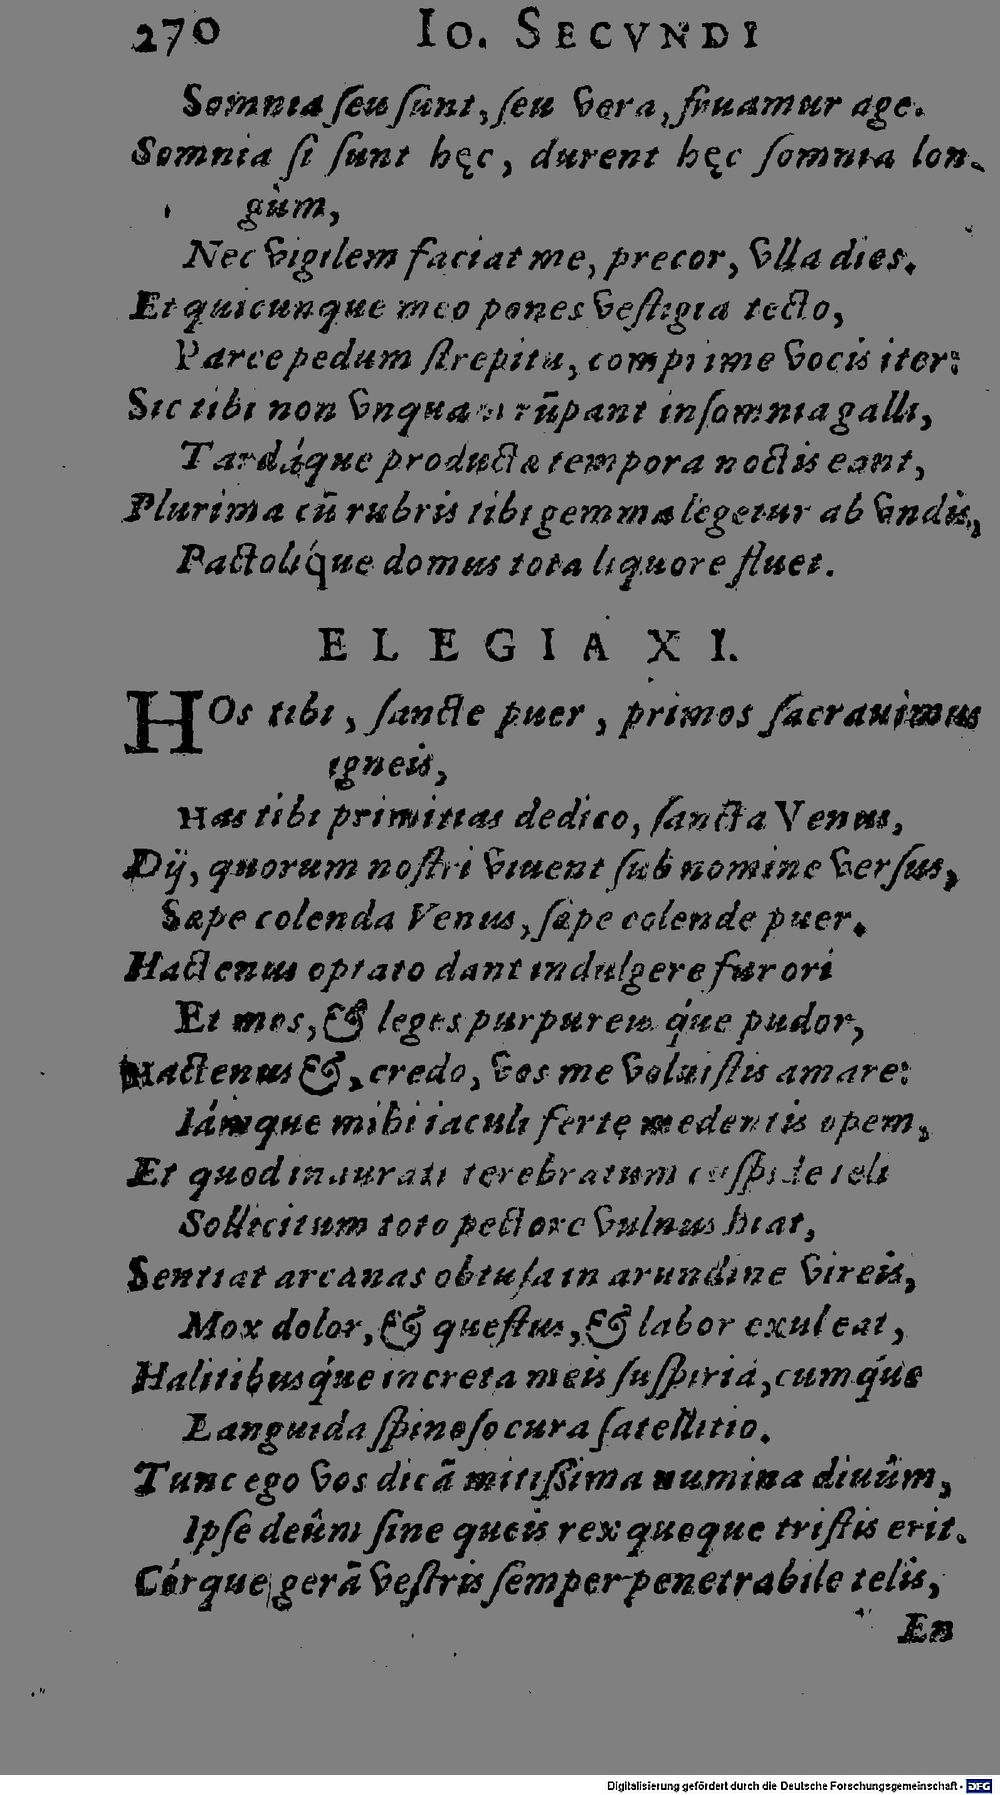 270 IO. SECVNDI
Somnia ſeu ſunt, ſeu vera, fruamur age.
Somnia ſi ſunt hęc, durent hęc ſomnia lon-
gùm,
Nec vigilem faciat me, precor, vlla dies.
Et quicunque meo pones veſtigia tecto,
Parce pedum ſtrepitu, comprime vocis iter:
Sic tibi non vnquam rũpant inſomnia galli,
Tardáque productæ tempora noctis eant,
Plurima cũ rubris tibi gemma legetur ab vndis,
Pactolíque domus tota liquore fluet.
ELEGIA XI.
HOs tibi, ſancte puer, primos ſacrauimus
igneis,
Has tibi primitias dedico, ſancta Venus,
Dij, quorum noſtri viuent ſub nomine verſus,
Sæpe colenda Venus, ſæpe colende puer.
Hactenus optato dant indulgere furori
Et mos, & leges purpureusq́ue pudor,
Hactenus &, credo, vos me voluiſtis amare:
Iámque mihi iaculi ferte medentis opem,
Et quod inaurati terebratum cuſpide teli
Sollicitum toto pectore vulnus hiat,
Sentiat arcanas obtuſa in arundine vireis,
Mox dolor, & queſtus, & labor exul eat,
Halitibusq́ue increta meis ſuſpiria, cumq́ue
Languida ſpinoſo cura ſatellitio.
Tunc ego vos dicã mitiſſima numina diuûm,
Ipſe deûm ſine queis rex quoque triſtis erit.
Córque gerã veſtris ſemper penetrabile telis,
En
Digitalisierung gefördert durch die Deutsche Forschungsgemeinschaft - DFG